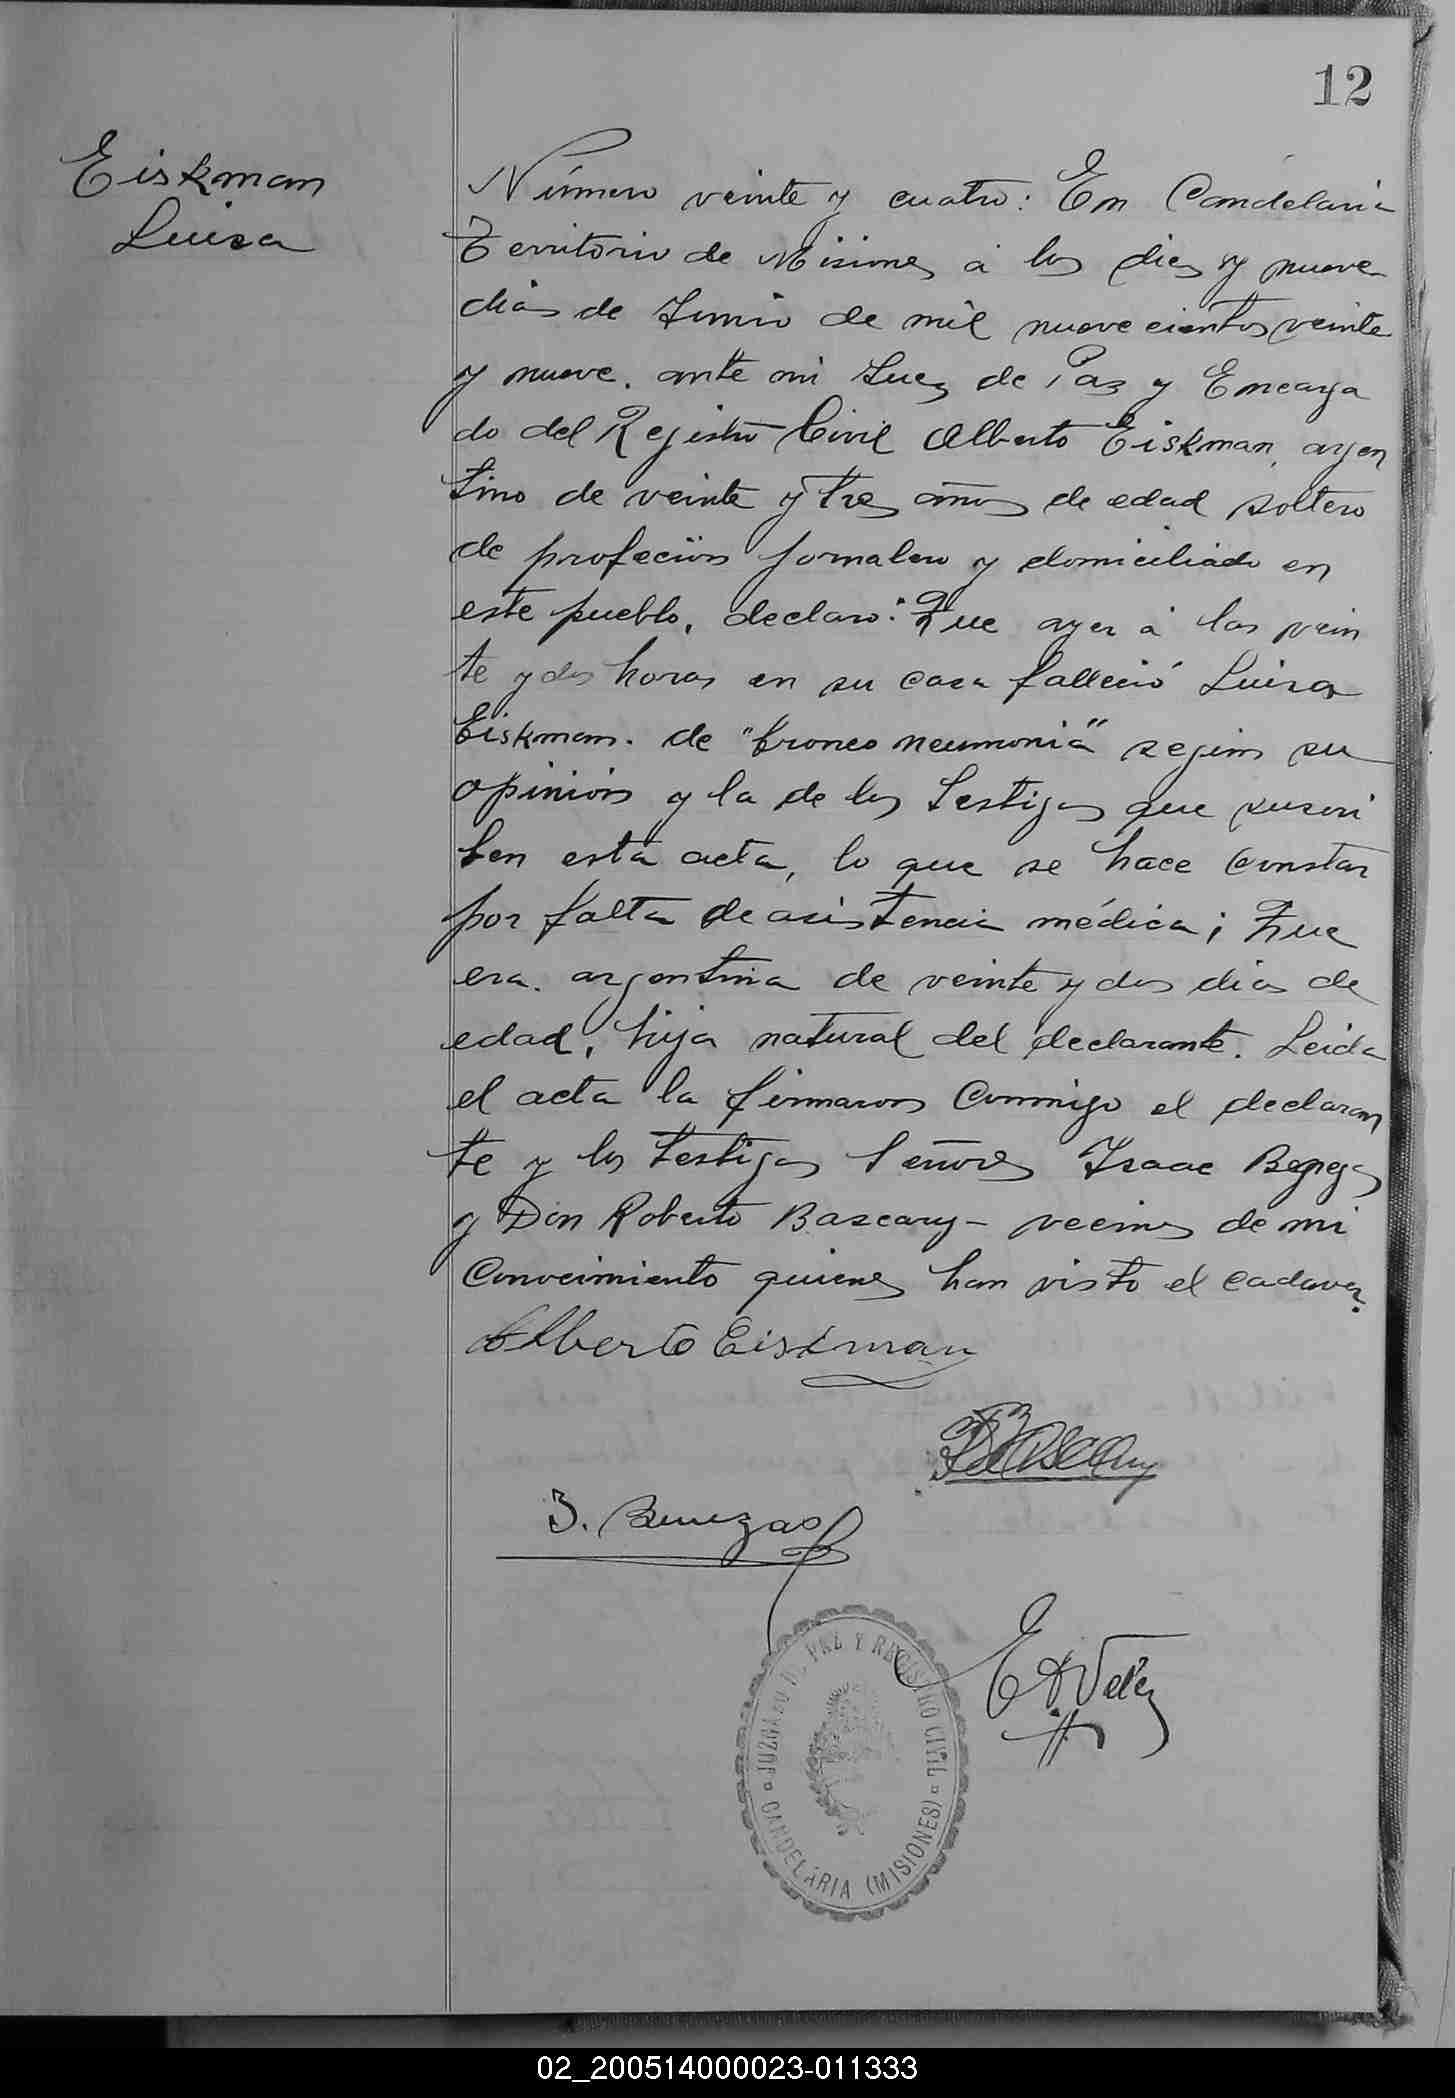 12
Eiskman
Luisa
Número veinte y cuatro: En Candelaria
Territorio de Misiones á los dies y nueve
dias de Junio de mil nuevecientos veinte
y nueve. ante mi Juez de Paz y Encarga
do del Registro Civil Alberto Eiskman, argen
tino de veinte y tres años de edad soltero
de profeción jornalero y domiciliado en
este pueblo, declaro: Que ayer á las vein
te y dos horas en su casa falleció Luisa
Eiskman. de "bronco neumonia" segun su
opinion y la de los testigos que suscri
ben esta acta, lo que se hace constar
por falta de asistencia médica; Que
era. argentina de veinte y dos dias de
edad, hija natural del declarante. Leida
el acta la firmaron conmigo el declaran
te y los testigos Señores Isaac
y Don Roberto Bascary - vecinos de mi
conocimiento quienes han visto el cadaver.
Alberto Eiskman
RBascary
E A Velez
JUZGADO DE PAZ Y REGISTRO CIVIL
CANDELARIA (MISIONES)
02_200514000023-011333